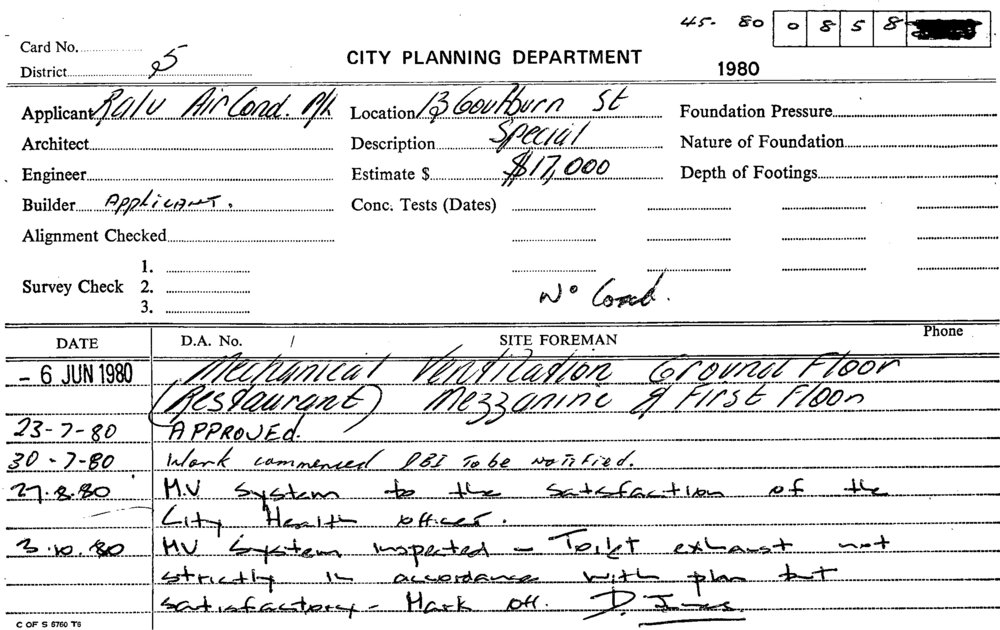 45- 80 0 8 5 8
Card No.
District 5
CITY PLANNING DEPARTMENT
1980
Applicant Ralv Air Cond. P/L Location 13 Goulburn St Foundation Pressure
Architect Description Special Nature of Foundation
Engineer Estimate $ $17,000 Depth of Footings
Builder Applicant. Conc. Tests (Dates)
Alignment Checked
Survey Check 1.
2.
3.
No Cond.
DATE D.A. No. / SITE FOREMAN Phone
- 6 JUN 1980 Mechanical Ventilation Ground Floor
(Restaurant) Mezzanine & First Floor
23-7-80 APPROVEd.
30-7-80 Work commenced DBI To be Notified.
27.8.80 M.V System to the satisfaction of the
City Health Officer.
3.10.80 MV System inspected - Toilet exhaust not
strictly in accordance with plan but
satisfactory - Mark off. D.
C OF S 5760 T6